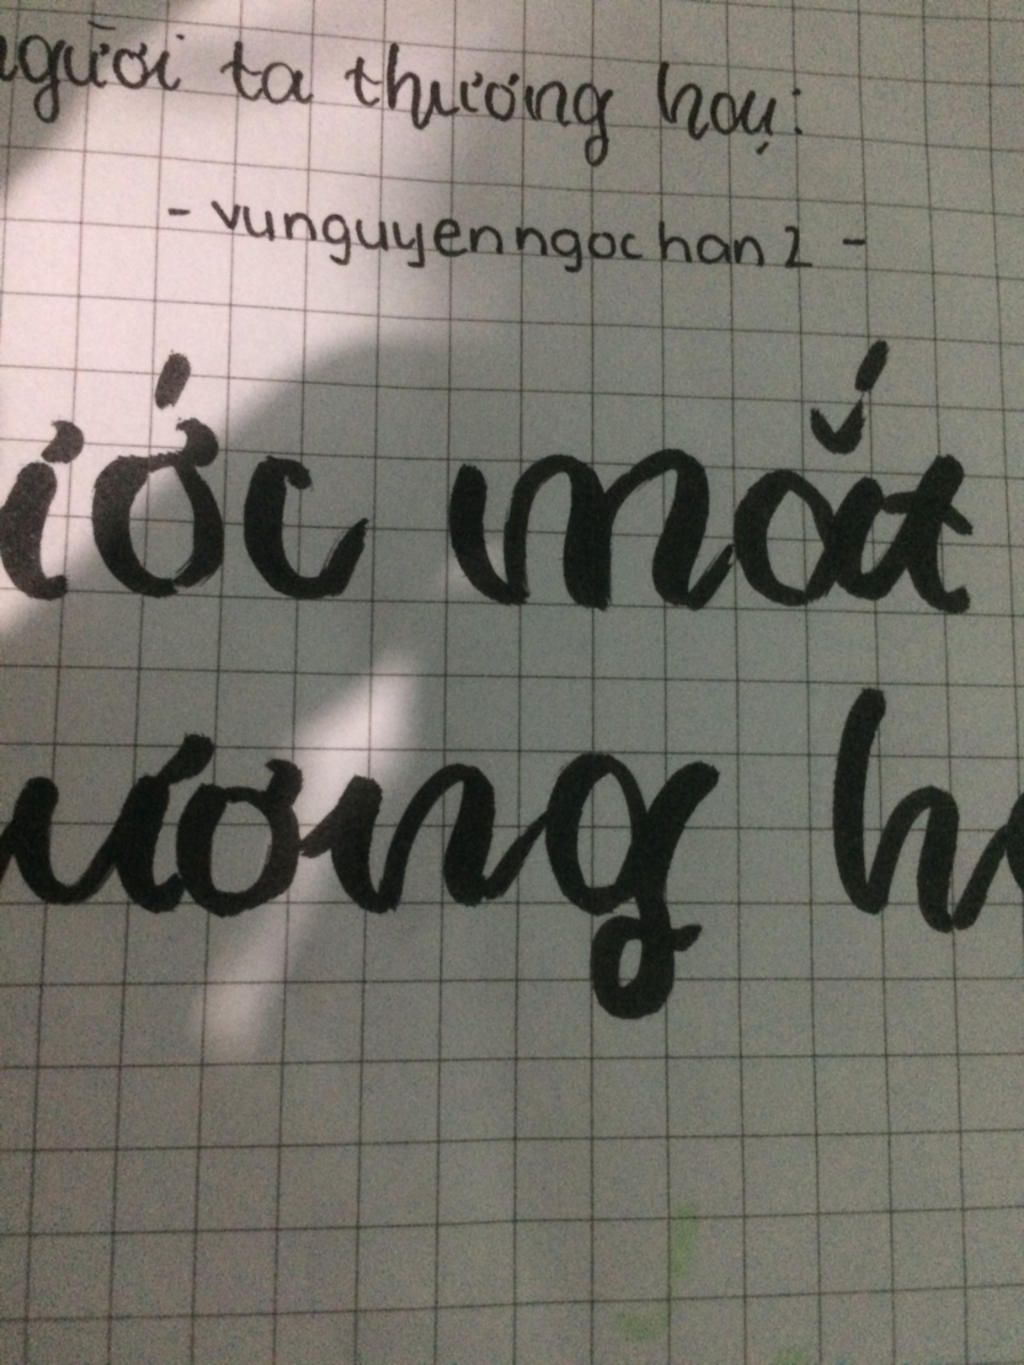 người ta thương hoụ:
- vunguyenngochan2 -
ước mắt
ương h